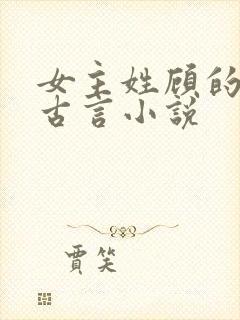 女主姓顾的
古言小说
賈笑